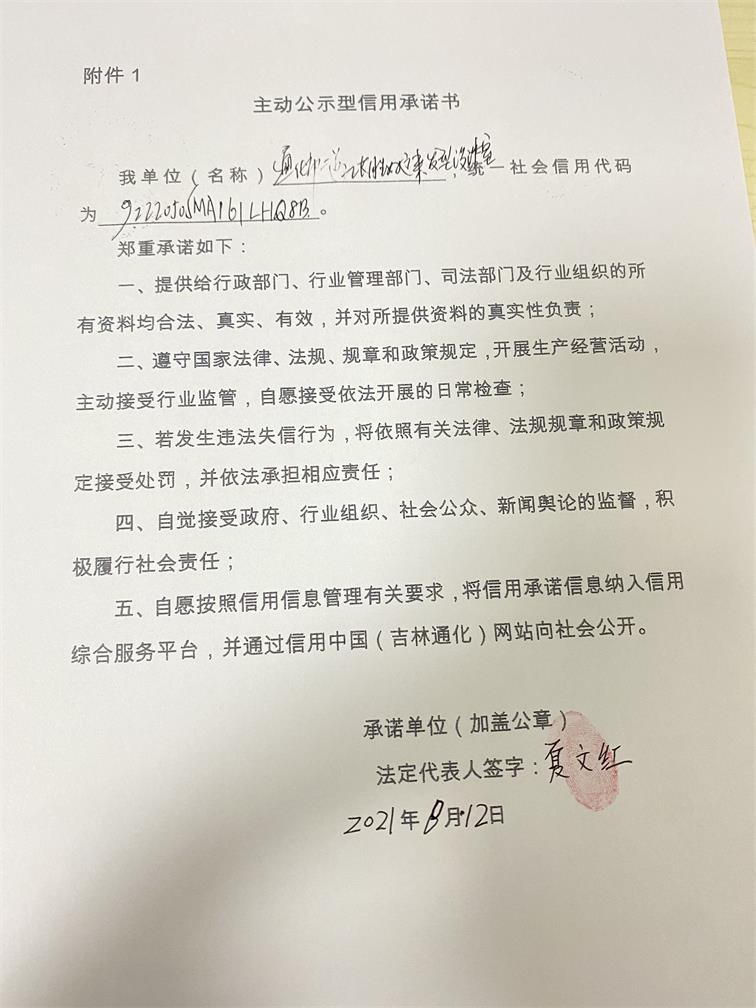 附件1
主动公示型信用承诺书
我单位（名称）通化市二道江 发型设计室，统一社会信用代码
为92220505MA161LHQ8B。
郑重承诺如下：
一、提供给行政部门、行业管理部门、司法部门及行业组织的所
有资料均合法、真实、有效，并对所提供资料的真实性负责；
二、遵守国家法律、法规、规章和政策规定，开展生产经营活动，
主动接受行业监管，自愿接受依法开展的日常检查；
三、若发生违法失信行为，将依照有关法律、法规规章和政策规
定接受处罚，并依法承担相应责任；
四、自觉接受政府、行业组织、社会公众、新闻舆论的监督，积
极履行社会责任；
五、自愿按照信用信息管理有关要求，将信用承诺信息纳入信用
综合服务平台，并通过信用中国（吉林通化）网站向社会公开。
承诺单位（加盖公章）
法定代表人签字：夏文红
2021年8月12日